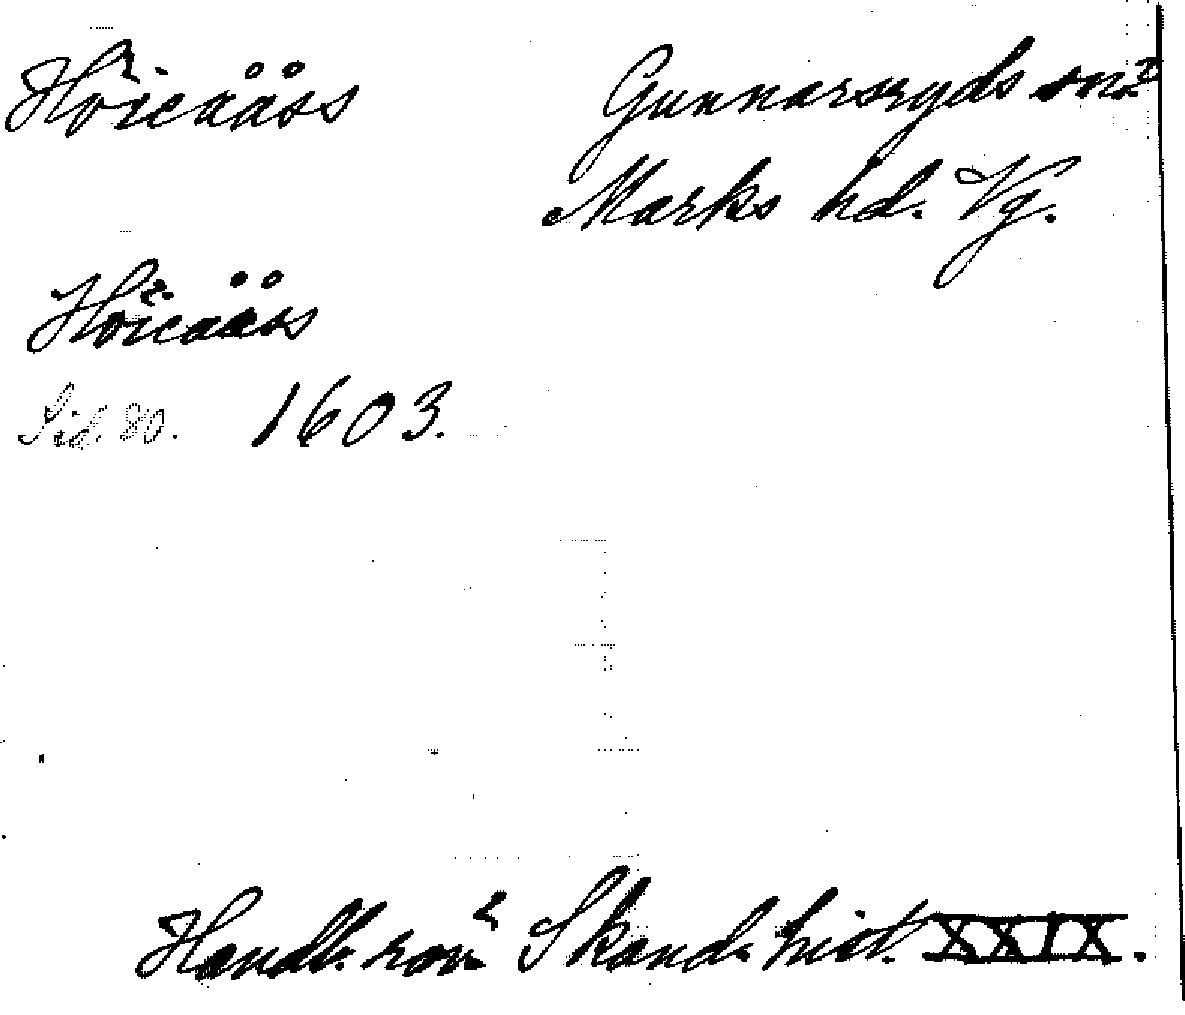 Höieääss
Gunnarsryds sn?
Marks hd. Vg.
Höieääss
Sid. 80. 1603.
Handl. rör. Skand. hist. XXIX.